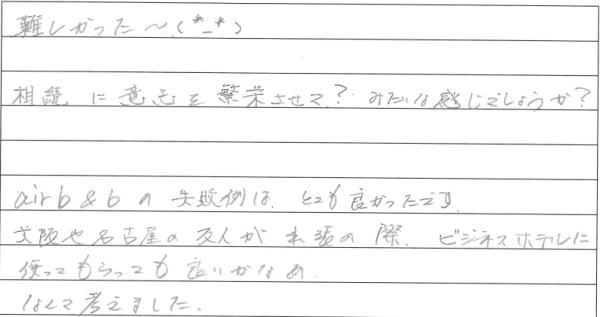 難しかった〜(*_*)
相続に意志を繁栄させて？みたいな感じでしょうか？
airb&bの失敗例は、とても良かったです。
大阪や名古屋の友人が出張の際、ビジネスホテルに
使ってもらっても良いかなあ、
なんて考えました。